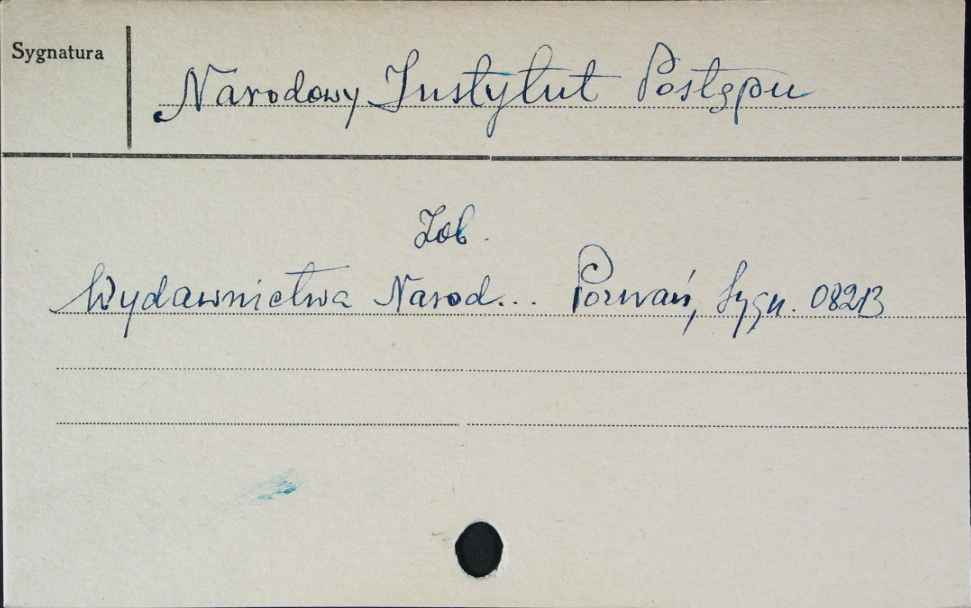 Sygnatura
Narodowy Instytut Postępu
Zob.
Wydawnictwa Narod... Poznań, Sygn. 08213